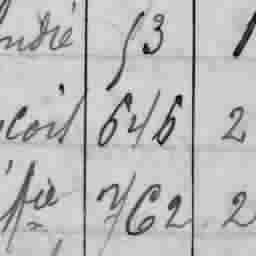 ndré 53 1
cois 646 2
fie 762 2